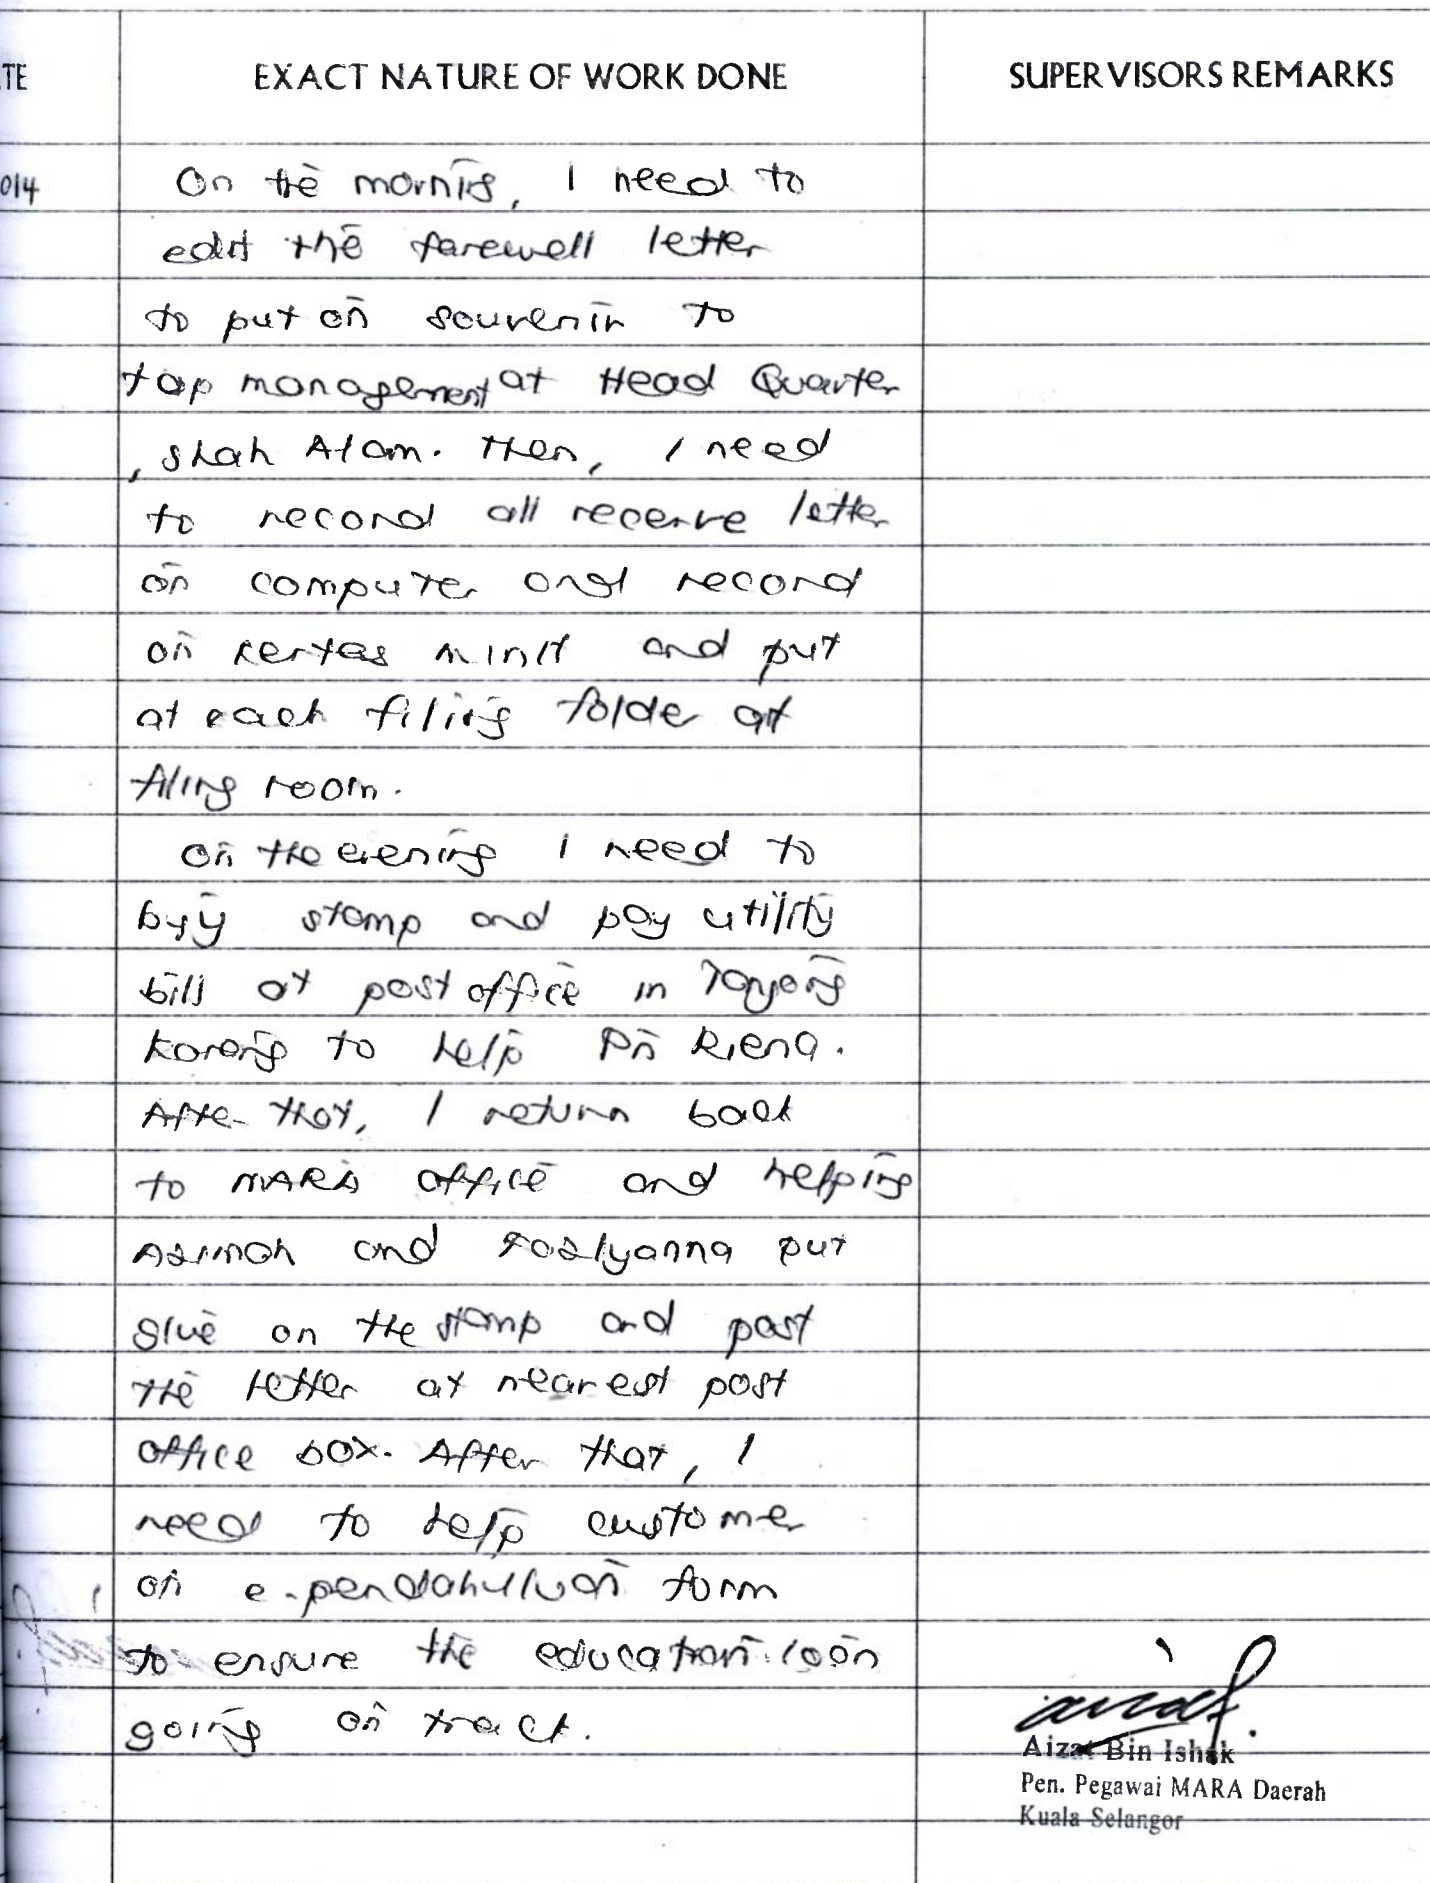 TE EXACT NATURE OF WORK DONE SUPERVISORS REMARKS
014 On the morning, I need to
edit the farewell letter
to put on souvenir to
top management at Head Quarter
, Shah Alam. Then, I need
to record all receive letter
on computer and record
on kertas minit and put
at each filing folder at
filing room.
On the evening I need to
buy stamp and pay utility
bill at post office in Tanjong
Karang to help Pn Riena.
After that, I return back
to MARA office and helping
Azimah and Rozlyanna put
glue on the stamp and post
the letter at nearest post
office box. After that, I
need to help customer
on e-pendahuluan form
to ensure the education loan
going on track.
Aizat Bin Ishak
Pen. Pegawai MARA Daerah
Kuala Selangor